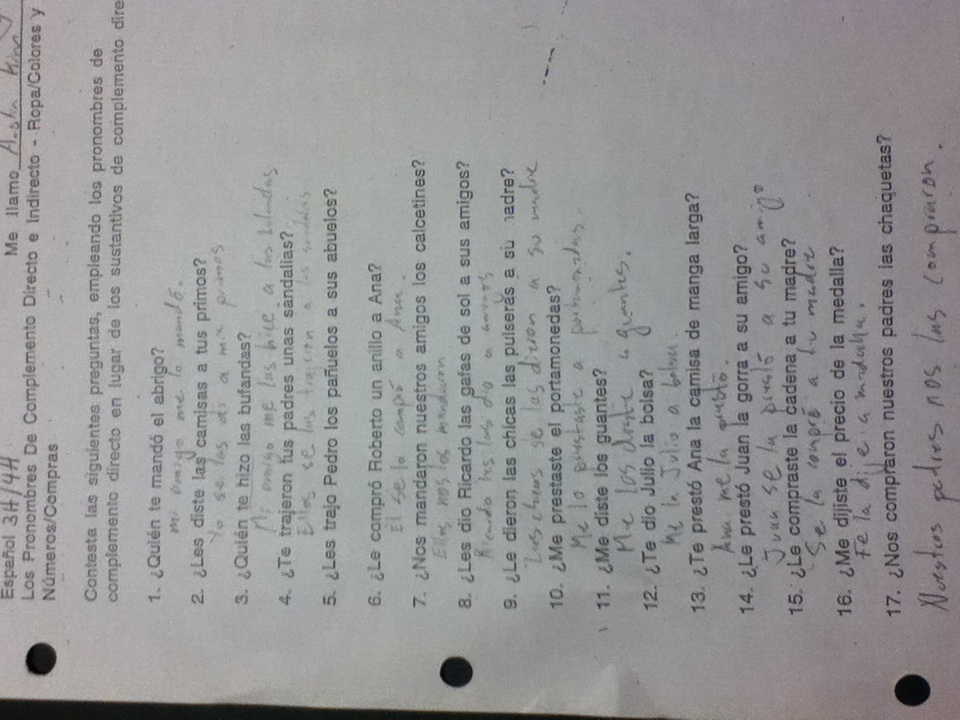 Español 3H/4H Me llamo
Los Pronombres De Complemento Directo e Indirecto - Ropa/Colores y
Números/Compras
Contesta las siguientes preguntas, empleando los pronombres de
complemento directo en lugar de los sustantivos de complemento dire
1. ¿Quién te mandó el abrigo?
Mi amigo me lo mandó.
2. ¿Les diste las camisas a tus primos?
Yo se las di a mis primos
3. ¿Quién te hizo las bufandas?
Mi amigo me las hice a las bufandas
4. ¿Te trajeron tus padres unas sandalias?
Ellos se las trajeron a las sandalias
5. ¿Les trajo Pedro los pañuelos a sus abuelos?
6. ¿Le compró Roberto un anillo a Ana?
El se lo compró a Ana.
7. ¿Nos mandaron nuestros amigos los calcetines?
Ellos nos los mandaron
8. ¿Les dio Ricardo las gafas de sol a sus amigos?
Ricardo les las dio a amigos
9. ¿Le dieron las chicas las pulseras a su madre?
Las chicas se las dieron a su madre
10. ¿Me prestaste el portamonedas?
Me lo prestaste a portamonedas.
11. ¿Me diste los guantes?
Me los diste a guantes.
12. ¿Te dio Julio la bolsa?
Me la Julio a bolsa.
13. ¿Te prestó Ana la camisa de manga larga?
Ana me la prestó.
14. ¿Le prestó Juan la gorra a su amigo?
Juan se la prestó a su amigo
15. ¿Le compraste la cadena a tu madre?
Se la compré a tu madre
16. ¿Me dijiste el precio de la medalla?
Te la dije a medalla.
17. ¿Nos compraron nuestros padres las chaquetas?
Nuestros padres nos las compraron.